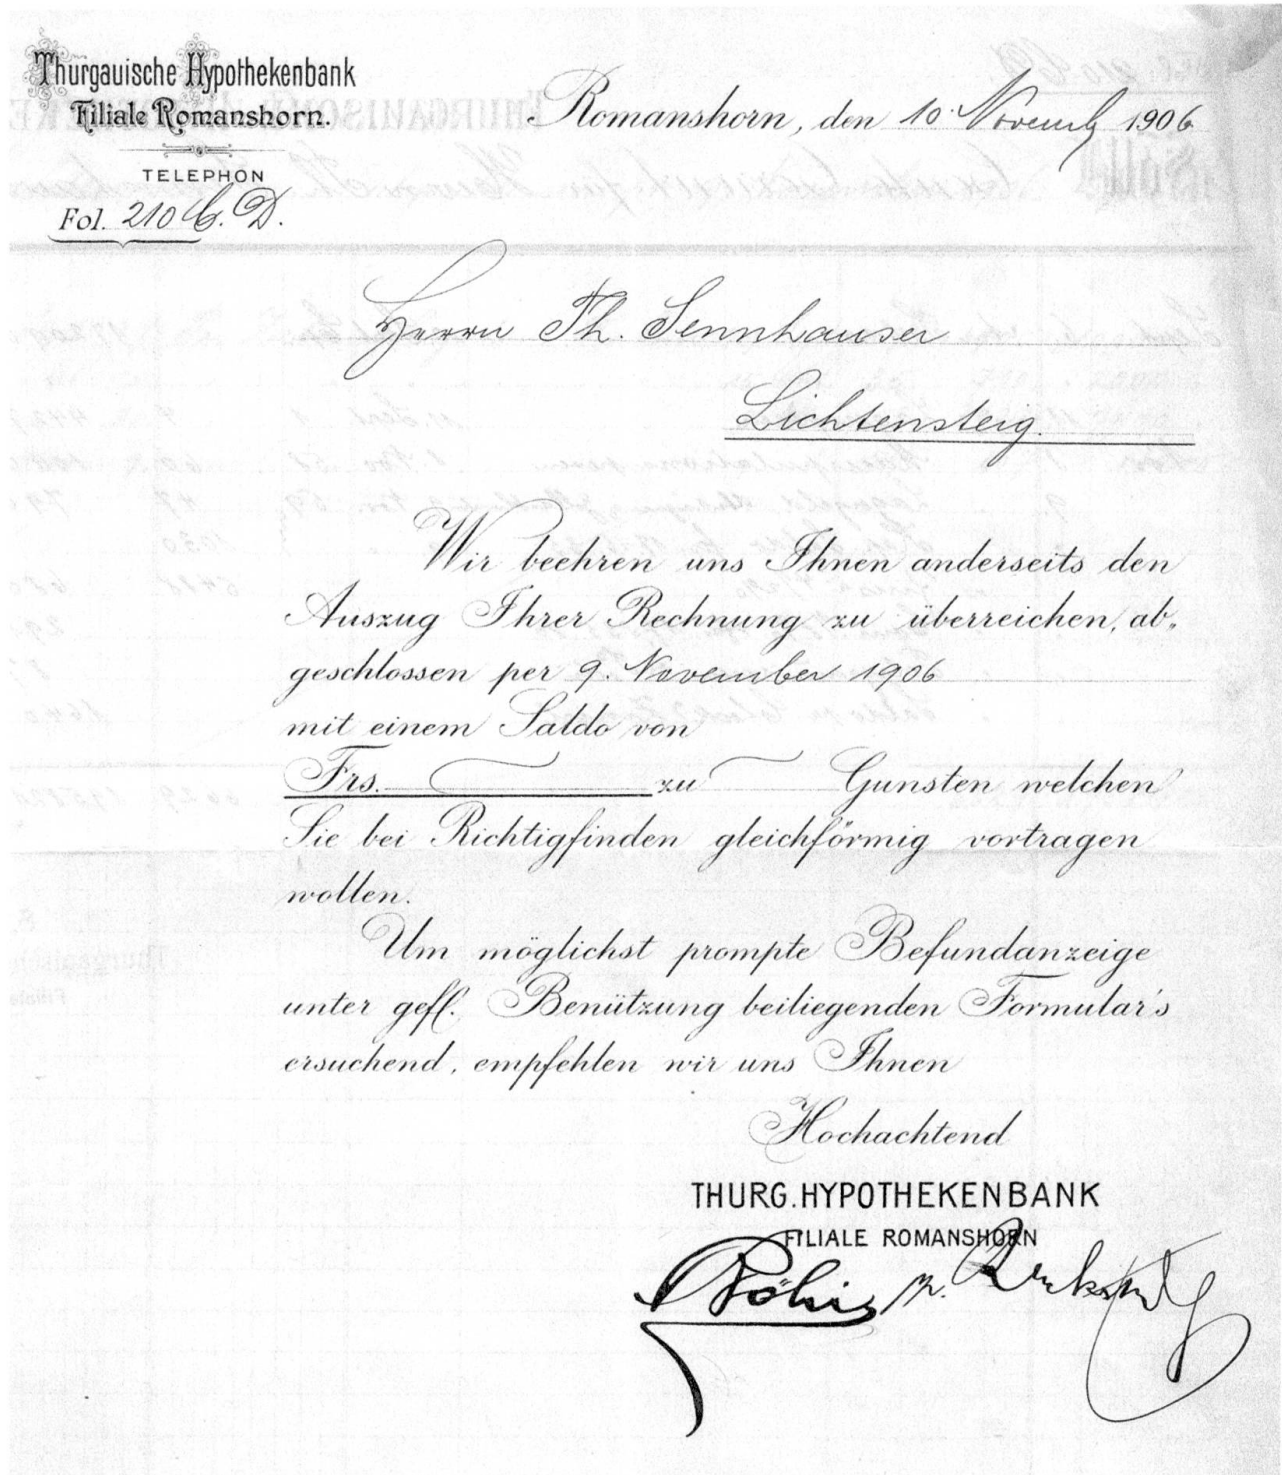 Thurgauische Hypothekenbank
Filiale Romanshorn.
TELEPHON
Fol. 210 C. D.
Romanshorn, den 10. Novemb 1906
Herrn Th. Sennhauser
Lichtensteig.
Wir beehren uns Ihnen anderseits den
Auszug Ihrer Rechnung zu überreichen, ab-
geschlossen per 9. November 1906
mit einem Saldo von
Frs. zu Gunsten welchen
Sie bei Richtigfinden gleichförmig vortragen
wollen.
Um möglichst prompte Befundanzeige
unter gefl. Benützung beiliegenden Formular's
ersuchend, empfehlen wir uns Ihnen
Hochachtend
THURG. HYPOTHEKENBANK
FILIALE ROMANSHORN